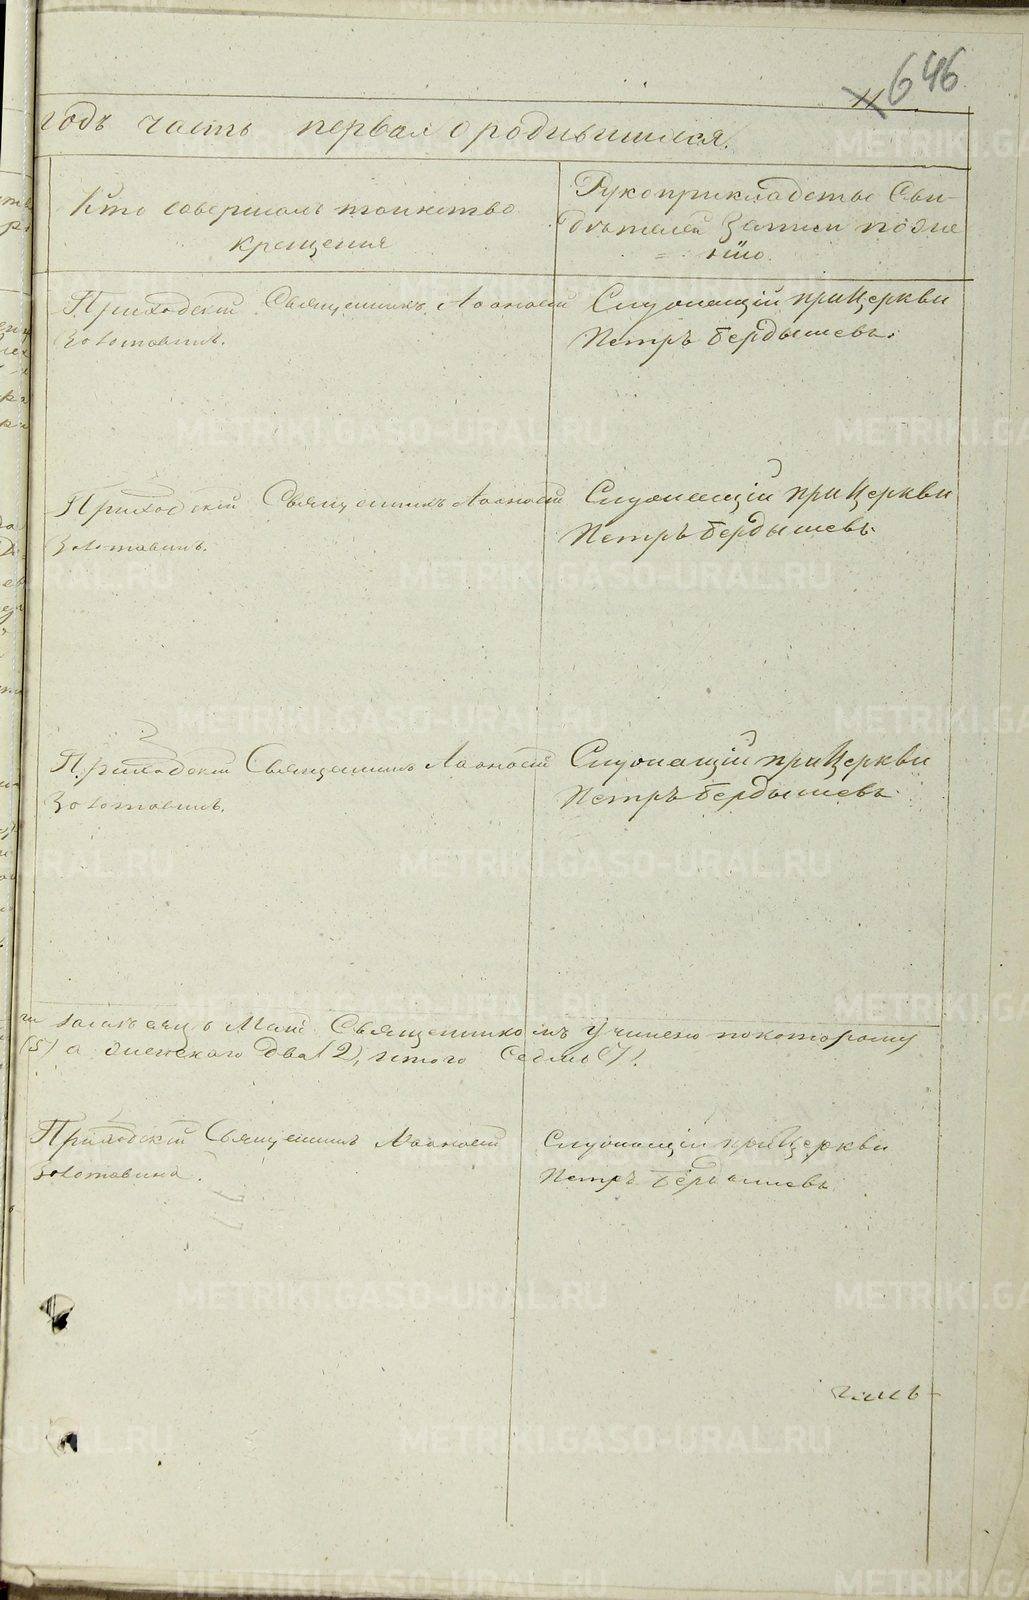 646
годъ часть первая о родившихся.
Кто совершалъ таинство
крещенія
Рукоприкладство Сви-
дѣтелей записи по жела-
нію
Приходскій Священникъ Аѳанасій
Золотавинъ.
Служащій при Церкви
Петръ Бердышевъ.
Приходскій Священникъ Аѳанасій
Золотавинъ.
Служащій при Церкви
Петръ Бердышевъ
Приходскій Священникъ Аѳанасій
Золотавинъ.
Служащій при Церкви
Петръ Бердышевъ
Маіѣ Священникомъ учинено по которому
(5) а женскаго два (2), итого Седмь (7).
Приходскій Священникъ Аѳанасій
Золотавинъ.
Служащій при Церкви
Петръ Бердышевъ
METRIKI.GASO-URAL.RU